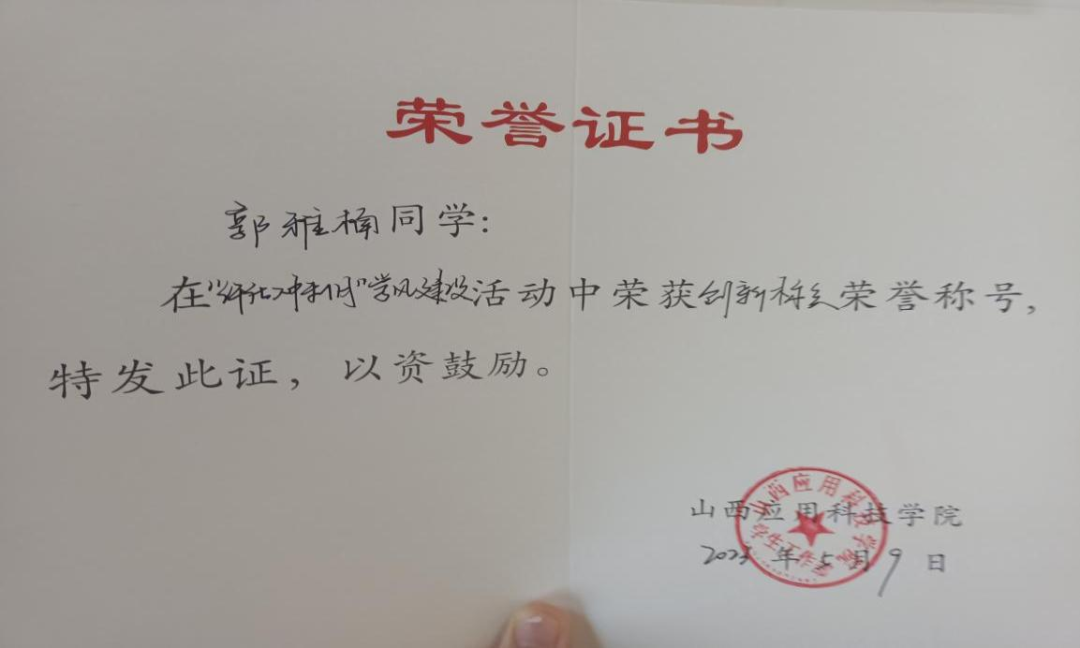 荣誉证书
郭雅楠同学:
在""学风建设活动中荣获创新标兵荣誉称号,
特发此证,以资鼓励。
山西应用科技学院
山西应用科技学院
学生工作部
年5月9日